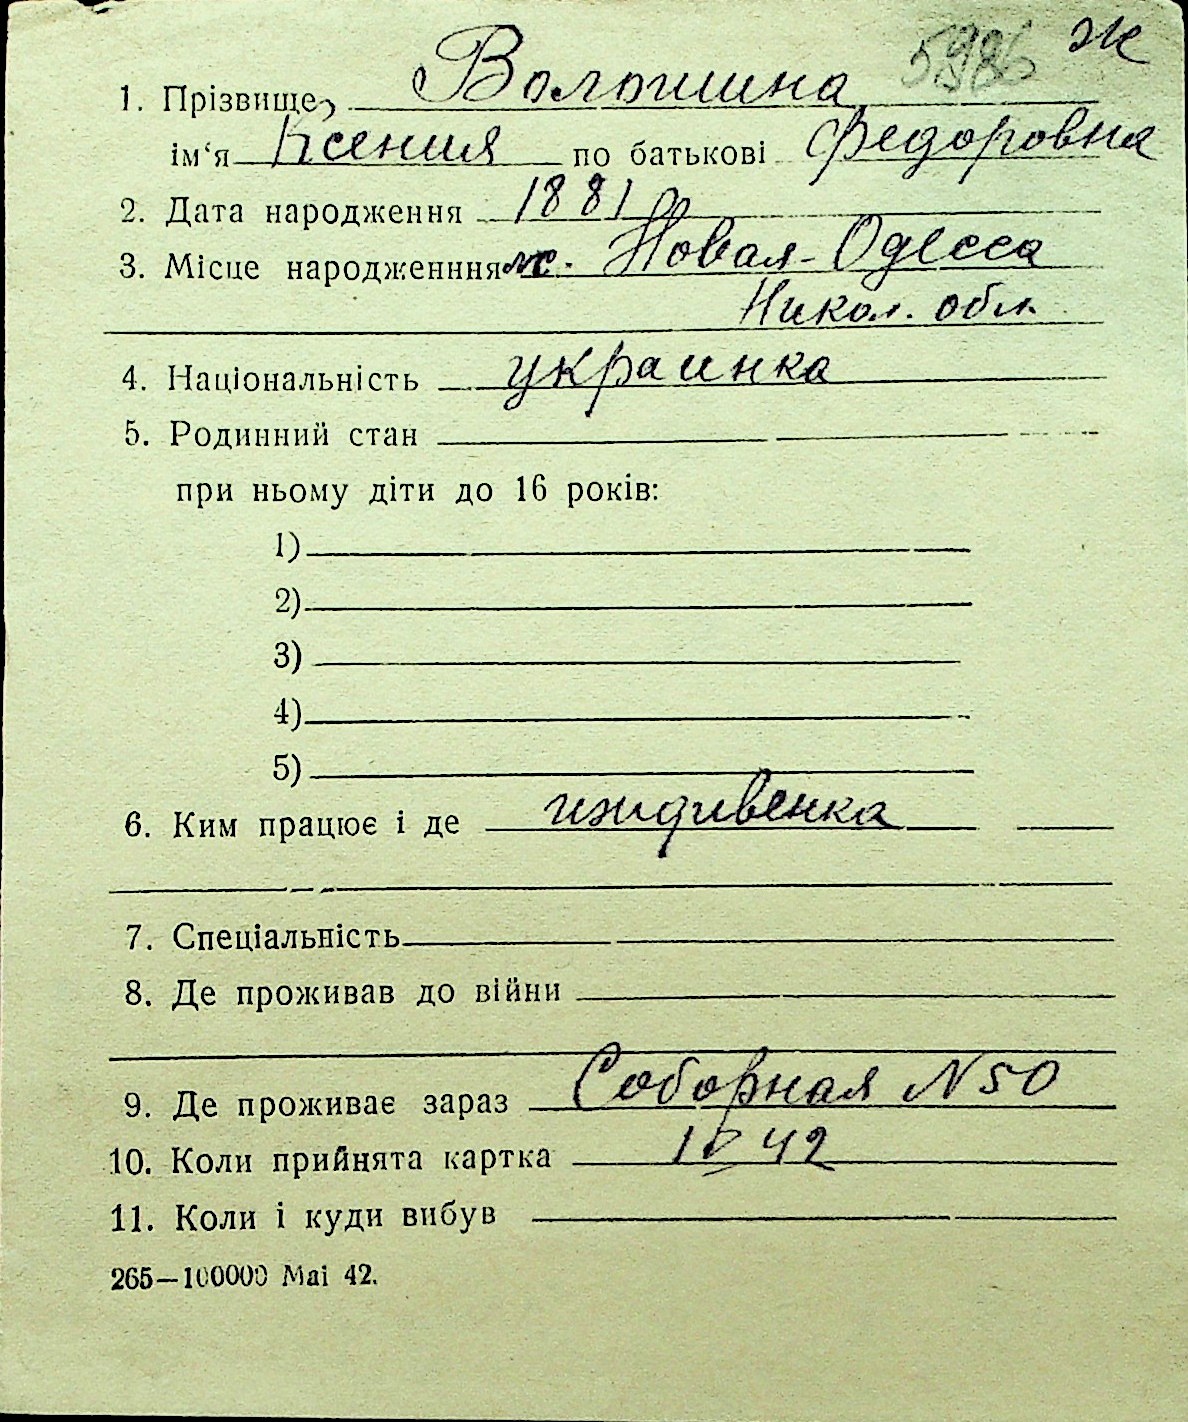 5986 ж
1. Прізвище, Волошина
ім‘я Ксения по батькові Федоровна
2. Дата народження 1881
3. Місце народженння м. Новая-Одесса
Никол. обл.
4. Національність украинка
5. Родинний стан
при ньому діти до 16 років:
1)
2)
3)
4)
5)
6. Ким працює і де иждивенка
7. Спеціальність
8. Де проживав до війни
9. Де проживає зараз Соборная N 50
10. Коли прийнята картка 42
11. Коли і куди вибув
265—100000 Mai 42.